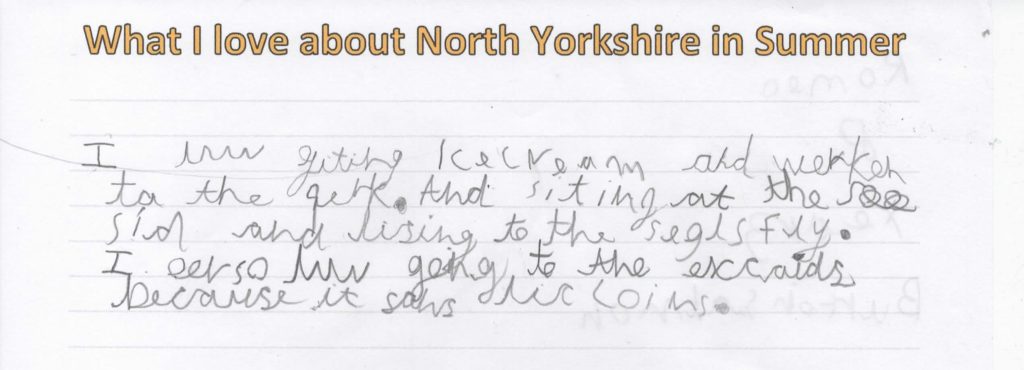 What I love about North Yorkshire in Summer
I luv giting Icecream and werken
to the perk. And siting at the see
sid and lising to the segls fly.
I oelso luv going to the excaids
because it sans lic coins.